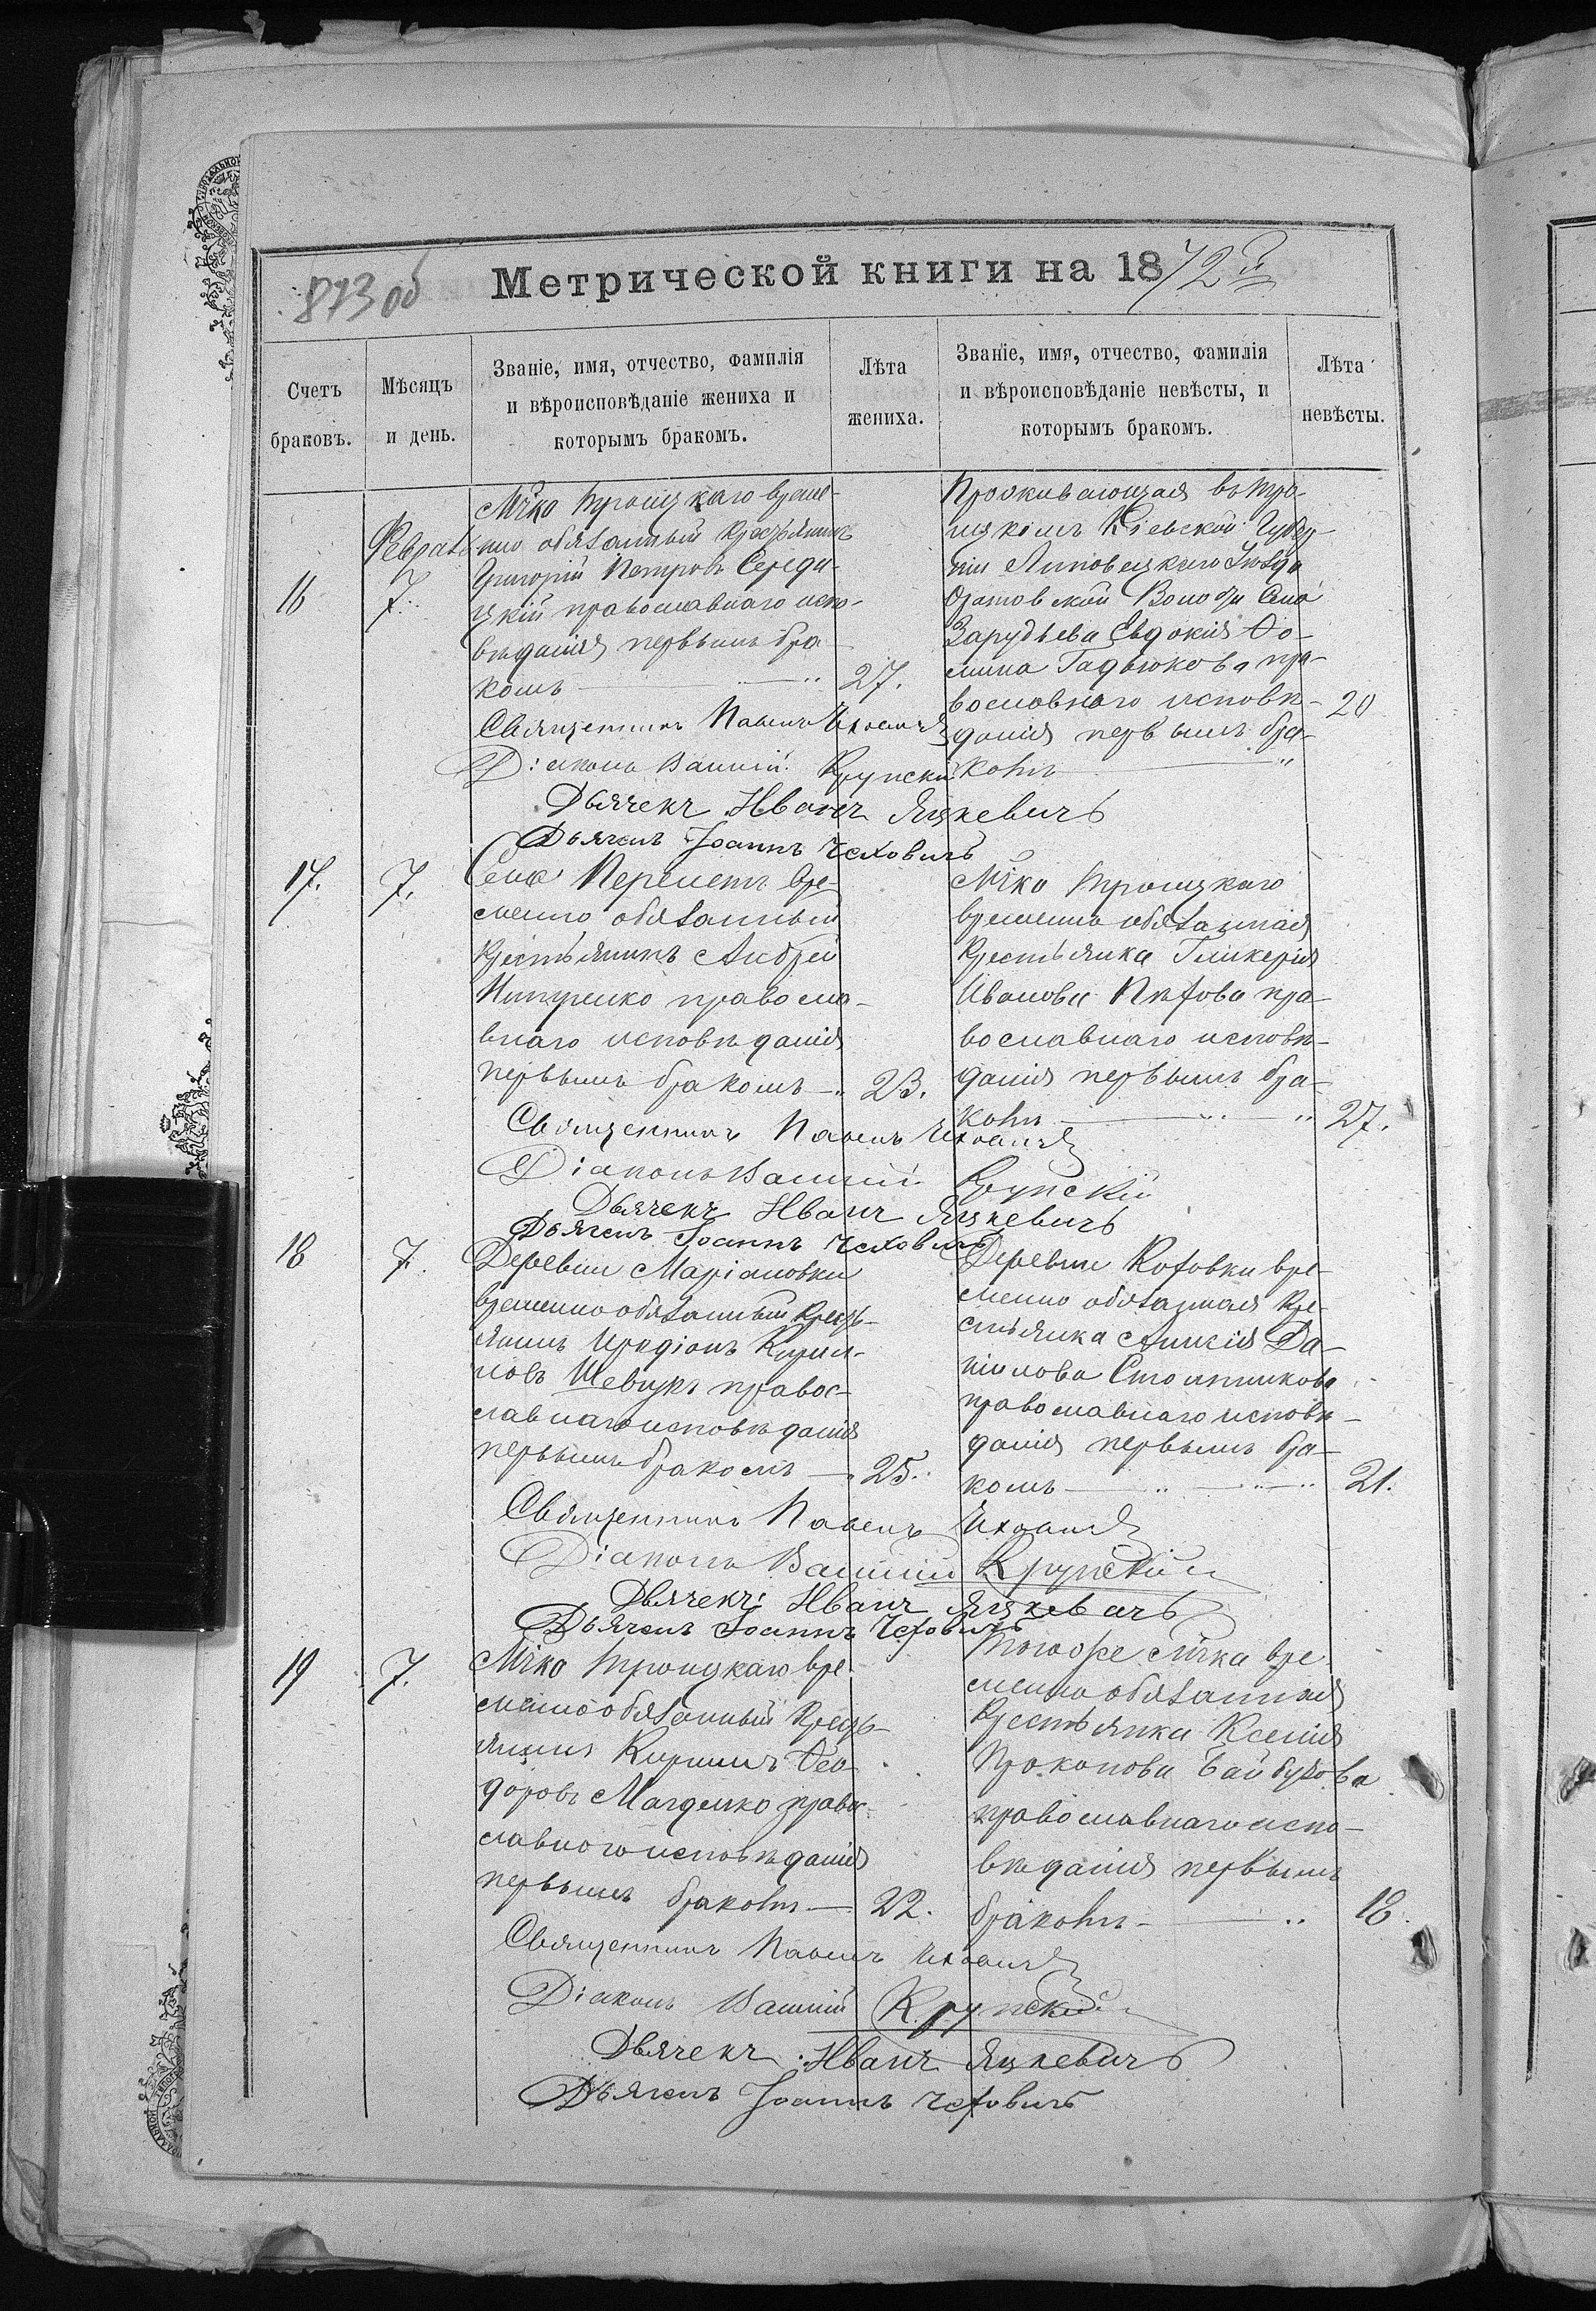 873 об
Метрической книги на 1872й
Счетъ браковъ.
Мѣсяцъ и день.
Званіе, имя, отчество, фамилія
и вѣроисповѣданіе жениха и
которымъ бракомъ.
Лѣта
жениха.
Званіе, имя, отчество, фамилія
и вѣроисповѣданіе невѣсты, и
которымъ бракомъ.
Лѣта
невѣсты.
16
Февраль
7.
Мѣка Троицкаго време-
нно обязанный крестьянинъ
Григорій Петровъ Середи-
цкій православнаго испо-
вѣданія первымъ бра-
комъ 27.
Проживающая въ Тро-
ицкомъ Кіевской Губер-
ніи Липовецкаго Уѣзда
Оратовской Волости Села
Зарудьева Евдокія Ѳо-
мина Гадзюкова пра-
вославнаго исповѣ- 20
данія первымъ бра-
комъ
Священникъ Павелъ
Діаконъ Василій Крупскій
Дьячекъ Иванъ Яцкевичъ
Дьячекъ Іоаннъ Чеховичъ
17. 7.
Села Перелетъ вре-
менно обязанный
крестьянинъ Андрей
православ-
наго исповѣданія
первымъ бракомъ 23.
Мѣка Троицкаго
временно обязанная
крестьянка Гликерія
Иванова пра-
вославнаго исповѣ-
данія первымъ бра-
комъ 27.
Священникъ Павелъ
Діаконъ Василій Крупскій
Дьячекъ Иванъ Яцкевичъ
Дьячекъ Іоаннъ Чеховичъ
18 7.
Деревни Маріановки
временно обязанный кресть-
янинъ Иродіонъ Кирил-
ловъ Шевчукъ правос-
лавнаго исповѣданія
первымъ бракомъ 25.
Деревни Козовки вре-
менно обязанная кре-
стьянка Анисія Да-
ніилова Столятникова
православнаго исповѣ-
данія первымъ бра-
комъ 21.
Священникъ Павелъ
Діаконъ Василій Крупскій
Дьячекъ Иванъ Яцкевичъ
Дьячекъ Іоаннъ Чеховичъ
19 7.
Мѣка Троицкаго вре-
менно обязанный кресть-
янинъ Кириллъ Ѳео-
доровъ Магденко право-
славнаго исповѣданія
первымъ бракомъ 22.
Того же мѣка вре-
менно обязанная
крестьянка Ксенія
Прокопова Байбузова
православнаго испо-
вѣданія первымъ
бракомъ 18.
Священникъ Павелъ
Діаконъ Василій Крупскій
Дьячекъ Иванъ Яцкевичъ
Дьячекъ Іоаннъ Чеховичъ